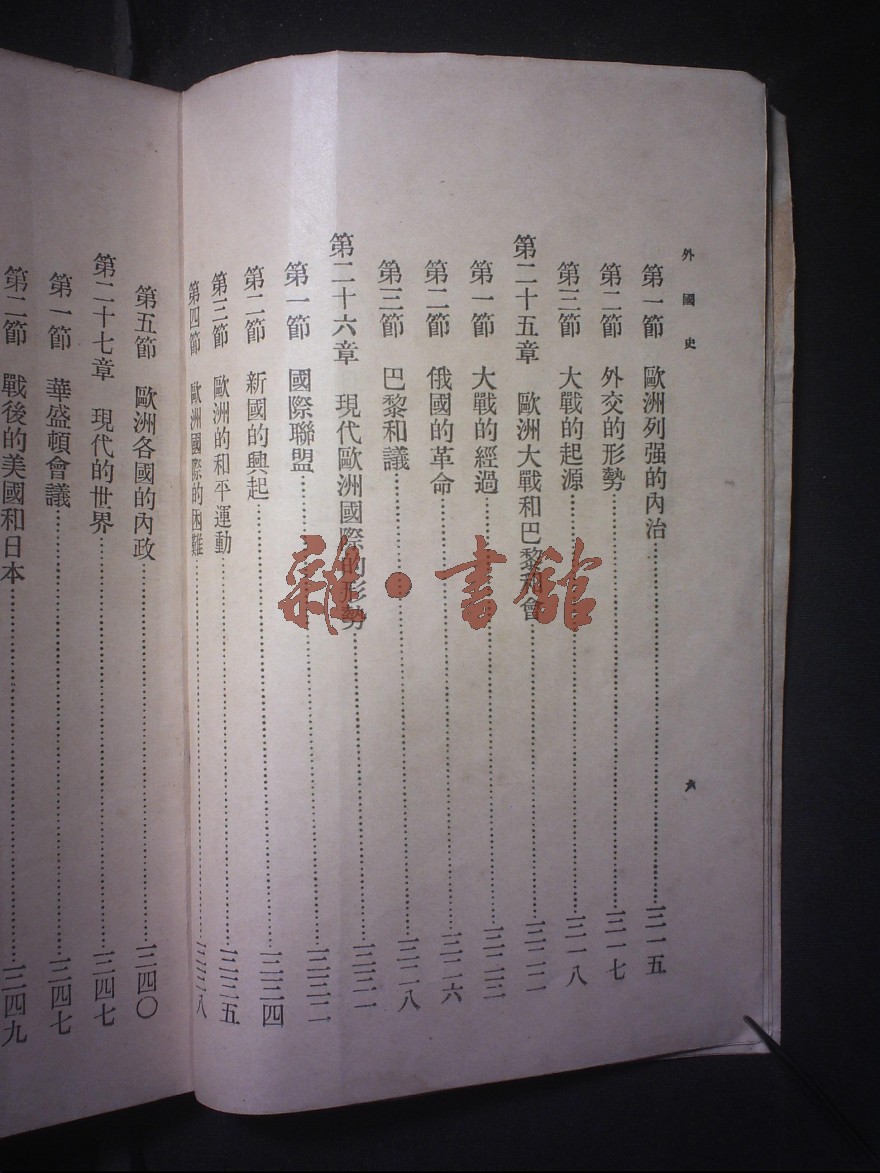 外國史
六
第一節 歐洲列强的內治……三一五
第二節 外交的形勢……三一七
第三節 大戰的起源……三一八
第二十五章 歐洲大戰和巴黎和會……三二二
第一節 大戰的經過……三二三
第二節 俄國的革命……三二六
第三節 巴黎和議……三二八
第二十六章 現代歐洲國際的形勢……三三一
第一節 國際聯盟……三三二
第二節 新國的興起……三三四
第三節 歐洲的和平運動……三三五
第四節 歐洲國際的困難……三三八
第五節 歐洲各國的內政……三四〇
第二十七章 現代的世界……三四七
第一節 華盛頓會議……三四七
第二節 戰後的美國和日本……三四九
雜·書館